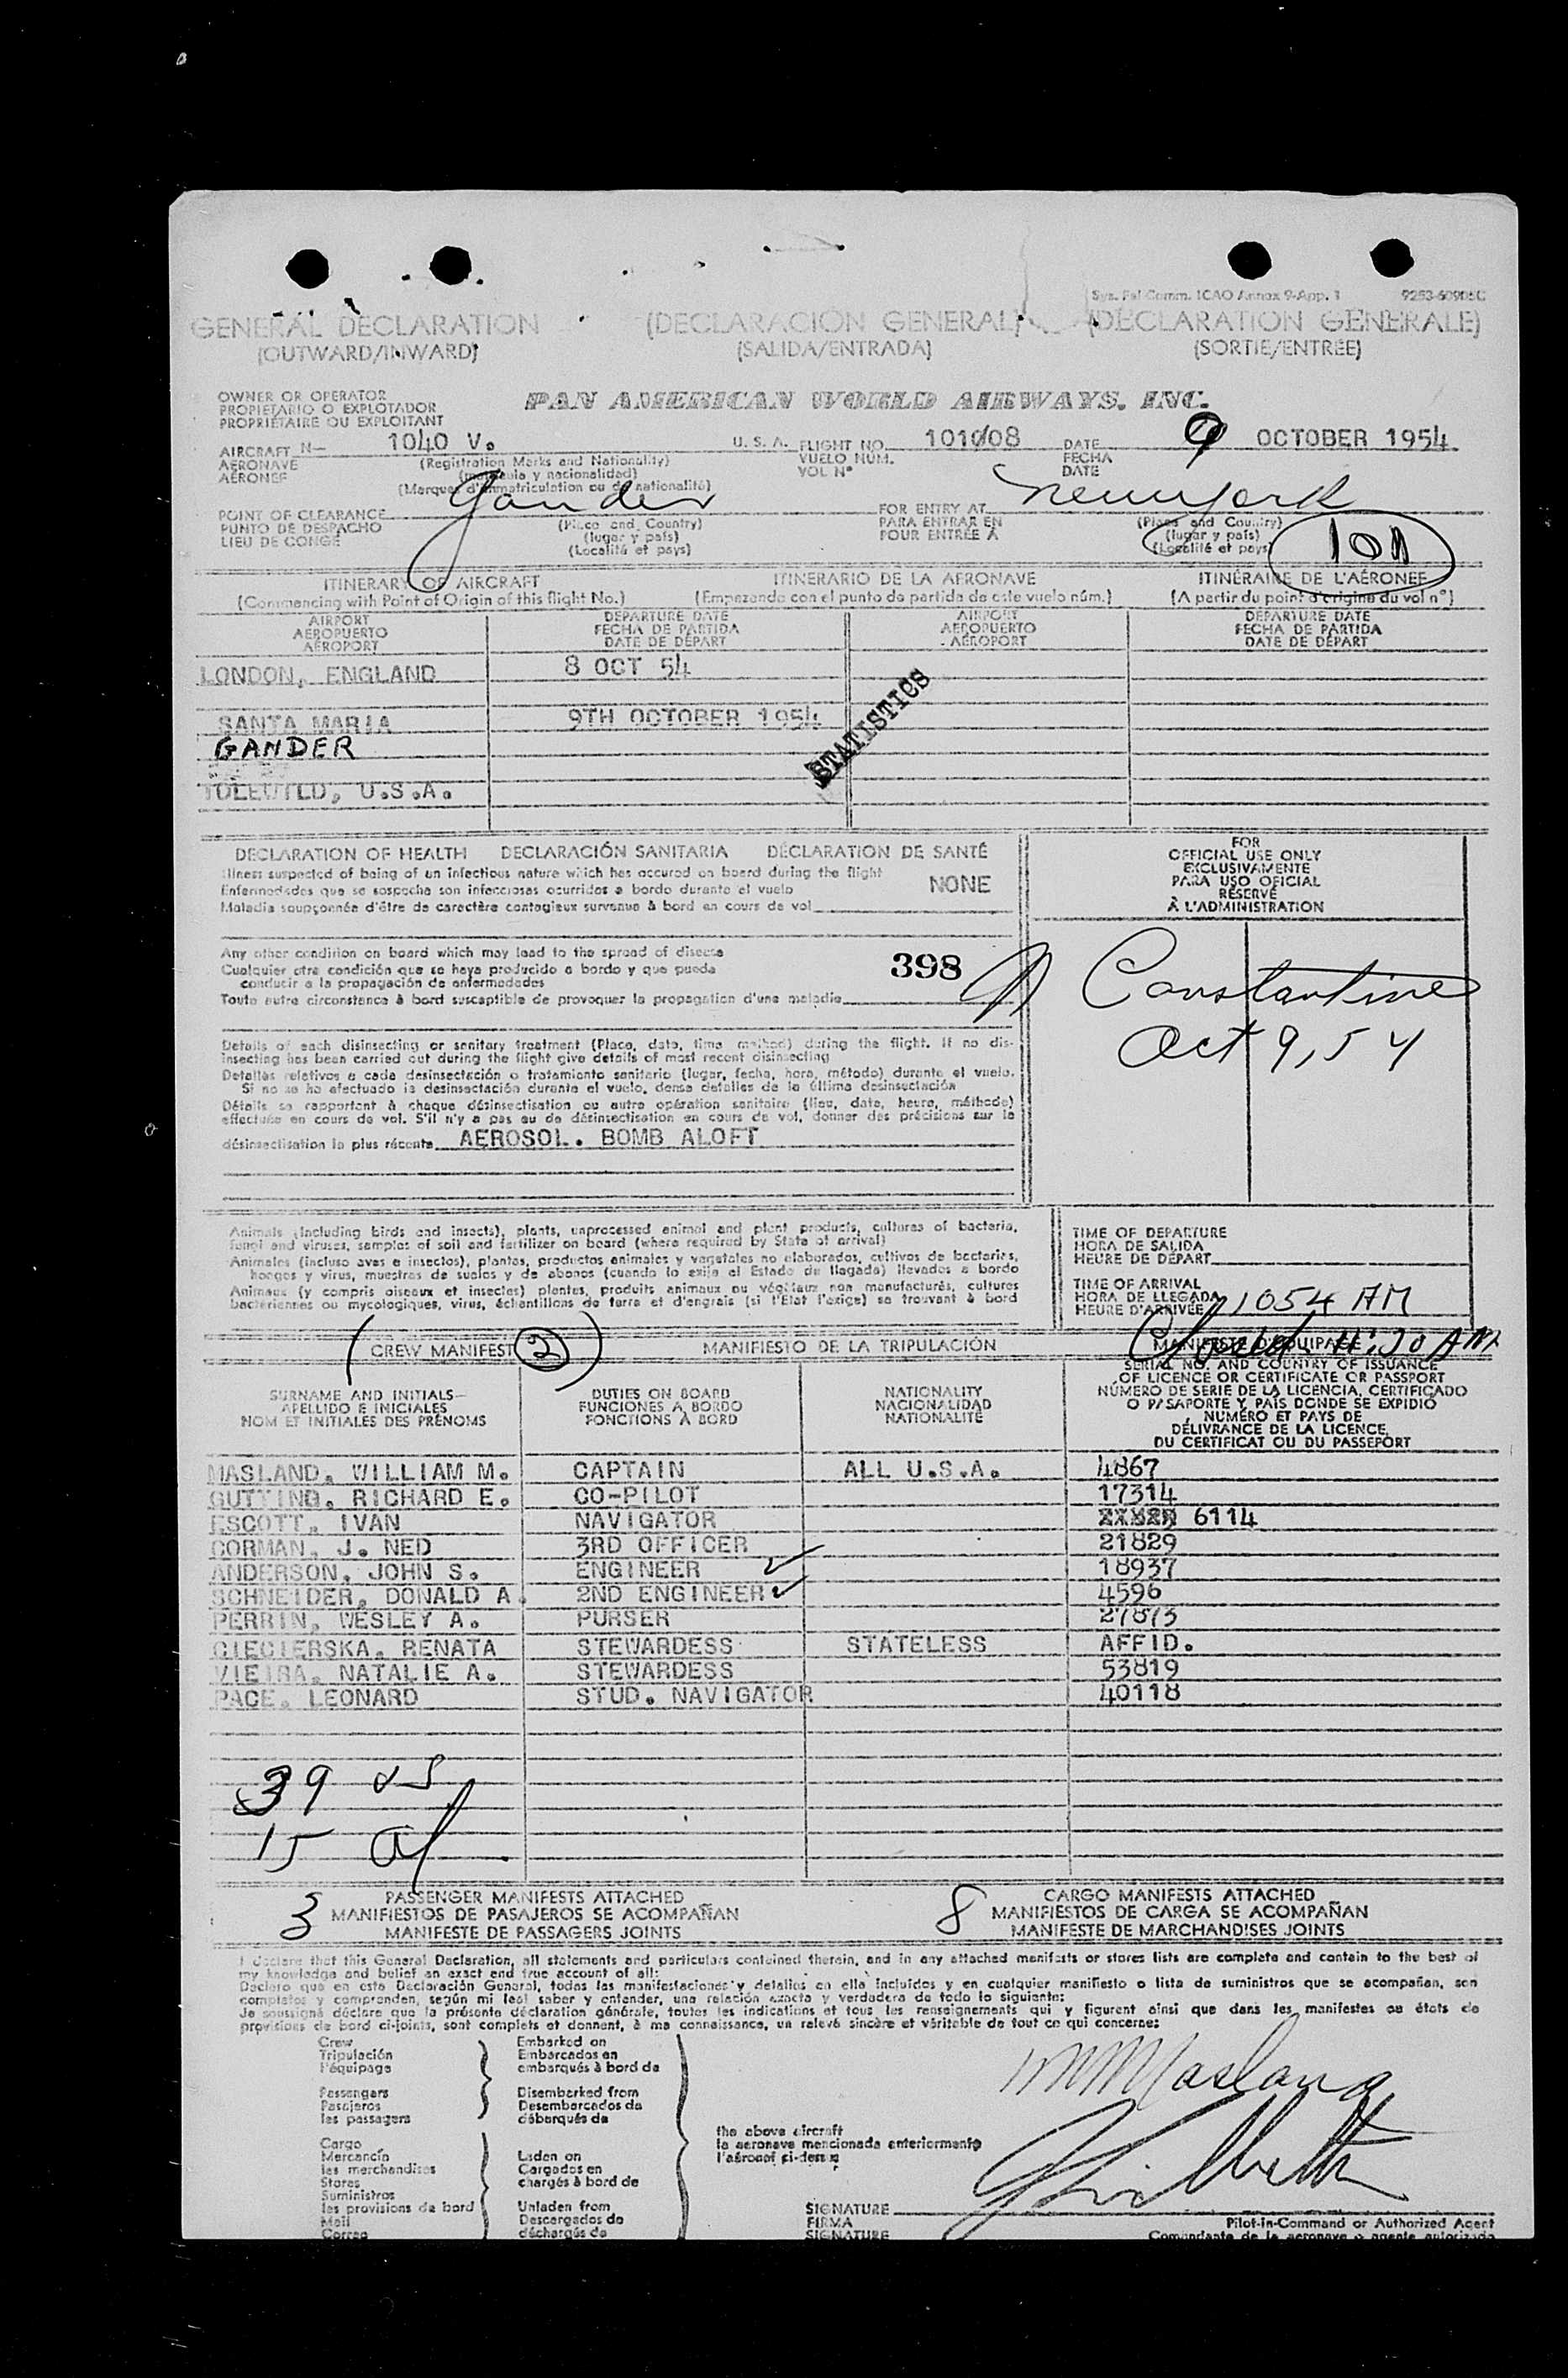 Sys. Fal Comm. ICAO Annex 9-App. 1 9253-60906C
GENERAL DECLARATION (DECLARACIÓN GENERAL) (DÉCLARATION GÉNÉRALE)
(OUTWARD/INWARD) (SALIDA/ENTRADA) (SORTIE/ENTRÉE)
OWNER OR OPERATOR
PROPIETARIO O EXPLOTADOR
PROPRIÉTAIRE OU EXPLOITANT
PAN AMERICAN WORLD AIRWAYS, INC.
AIRCRAFT N— 1040 V. U. S. A. FLIGHT NO. 101 /08 DATE 9 OCTOBER 1954
AERONAVE (Registration Marks and Nationality) VUELO NÚM. FECHA
AÉRONEF (matrícula y nacionalidad) VOL N° DATE
(Marques d'immatriculation ou de nationalité)
POINT OF CLEARANCE Gander FOR ENTRY AT New York
PUNTO DE DESPACHO (Place and Country) PARA ENTRAR EN (Place and Country)
LIEU DE CONGÉ (lugar y país) POUR ENTRÉE À (lugar y país)
(Localité et pays) (Localité et pays) 101
ITINERARY OF AIRCRAFT ITINERARIO DE LA AERONAVE ITINÉRAIRE DE L'AÉRONEF
(Commencing with Point of Origin of this flight No.) (Empezando con el punto de partida de este vuelo núm.) (A partir du point d'origine du vol n°)
AIRPORT DEPARTURE DATE AIRPORT DEPARTURE DATE
AEROPUERTO FECHA DE PARTIDA AEROPUERTO FECHA DE PARTIDA
AÉROPORT DATE DE DÉPART AÉROPORT DATE DE DÉPART
LONDON, ENGLAND 8 OCT 54
SANTA MARIA 9TH OCTOBER 1954
STATISTICS
GANDER
IDLEWILD, U.S.A.
DECLARATION OF HEALTH DECLARACIÓN SANITARIA DÉCLARATION DE SANTÉ
Illness suspected of being of an infectious nature which has occured on board during the flight
Enfermedades que se sospecha son infecciosas ocurridas a bordo durante el vuelo NONE
Maladie soupçonnée d'être de caractère contagieux survenue à bord en cours de vol
FOR
OFFICIAL USE ONLY
EXCLUSIVAMENTE
PARA USO OFICIAL
RÉSERVÉ
À L'ADMINISTRATION
Any other condition on board which may lead to the spread of disease
Cualquier otra condición que se haya producido a bordo y que pueda
conducir a la propagación de enfermedades
398
Toute autre circonstance à bord susceptible de provoquer la propagation d'une maladie
Constantine
Oct 9, 54
Details of each disinsecting or sanitary treatment (Place, date, time method) during the flight. If no dis-
insecting has been carried out during the flight give details of most recent disinsecting
Detalles relativos a cada desinsectación o tratamiento sanitario (lugar, fecha, hora, método) durante el vuelo.
Si no se ha efectuado la desinsectación durante el vuelo, dense detalles de la última desinsectación
Détails se rapportant à chaque désinsectisation ou autre opération sanitaire (lieu, date, heure, méthode)
effectuée en cours de vol. S'il n'y a pas eu de désinsectisation en cours de vol, donner des précisions sur la
désinsectisation la plus récente AEROSOL. BOMB ALOFT
Animals (including birds and insects), plants, unprocessed animal and plant products, cultures of bacteria,
fungi and viruses, samples of soil and fertilizer on board (where required by State of arrival)
Animales (incluso aves e insectos), plantas, productos animales y vegetales no elaborados, cultivos de bacterias,
hongos y virus, muestras de suelos y de abonos (cuando lo exija el Estado de llegada) llevados a bordo
Animaux (y compris oiseaux et insectes) plantes, produits animaux ou végétaux non manufacturés, cultures
bactériennes ou mycologiques, virus, échantillons de terre et d'engrais (si l'Etat l'exige) se trouvant à bord
TIME OF DEPARTURE
HORA DE SALIDA
HEURE DE DÉPART
TIME OF ARRIVAL
HORA DE LLEGADA
HEURE D'ARRIVÉE 1054 AM
11:30 AM
CREW MANIFEST 2 MANIFIESTO DE LA TRIPULACIÓN MANIFESTE D'ÉQUIPAGE
SURNAME AND INITIALS—
APELLIDO E INICIALES
NOM ET INITIALES DES PRÉNOMS
DUTIES ON BOARD
FUNCIONES A BORDO
FONCTIONS À BORD
NATIONALITY
NACIONALIDAD
NATIONALITÉ
SERIAL NO. AND COUNTRY OF ISSUANCE
OF LICENCE OR CERTIFICATE OR PASSPORT
NÚMERO DE SERIE DE LA LICENCIA, CERTIFICADO
O PASAPORTE Y PAÍS DONDE SE EXPIDIÓ
NUMÉRO ET PAYS DE
DÉLIVRANCE DE LA LICENCE,
DU CERTIFICAT OU DU PASSEPORT
MASLAND, WILLIAM M. CAPTAIN ALL U.S.A. 4867
GUTTING, RICHARD E. CO-PILOT 17314
ESCOTT, IVAN NAVIGATOR 6114
CORMAN, J. NED 3RD OFFICER 21829
ANDERSON, JOHN S. ENGINEER 18937
SCHNEIDER, DONALD A. 2ND ENGINEER 4596
PERRIN, WESLEY A. PURSER 27873
CIECIERSKA, RENATA STEWARDESS STATELESS AFFID.
VIEIRA, NATALIE A. STEWARDESS 53819
PACE, LEONARD STUD. NAVIGATOR 40118
39 us
15 al
3 PASSENGER MANIFESTS ATTACHED 8 CARGO MANIFESTS ATTACHED
MANIFIESTOS DE PASAJEROS SE ACOMPAÑAN MANIFIESTOS DE CARGA SE ACOMPAÑAN
MANIFESTE DE PASSAGERS JOINTS MANIFESTE DE MARCHANDISES JOINTS
I declare that this General Declaration, all statements and particulars contained therein, and in any attached manifests or stores lists are complete and contain to the best of
my knowledge and belief an exact and true account of all:
Declaro que en esta Declaración General, todas las manifestaciones y detalles en ella incluídos y en cualquier manifiesto o lista de suministros que se acompañan, son
completos y comprenden, según mi leal saber y entender, una relación exacta y verdadera de todo lo siguiente:
Je soussigné déclare que la présente déclaration générale, toutes les indications et tous les renseignements qui y figurent ainsi que dans les manifestes ou états de
provisions de bord ci-joints, sont complets et donnent, à ma connaissance, un relevé sincère et véritable de tout ce qui concerne:
Crew Embarked on
Tripulación Embarcados en
l'équipage embarqués à bord de
Passengers Disembarked from
Pasajeros Desembarcados de
les passagers débarqués de
Cargo
Mercancía Laden on
les merchandises Cargados en
Stores chargés à bord de
Suministros
les provisions de bord Unladen from
Mail Descargados de
Correo déchargés de
the above aircraft
la aeronave mencionada anteriormente
l'aéronef ci-dessus
WM Masland
SIGNATURE
FIRMA
SIGNATURE
Pilot-in-Command or Authorized Agent
Comandante de la aeronave o agente autorizado